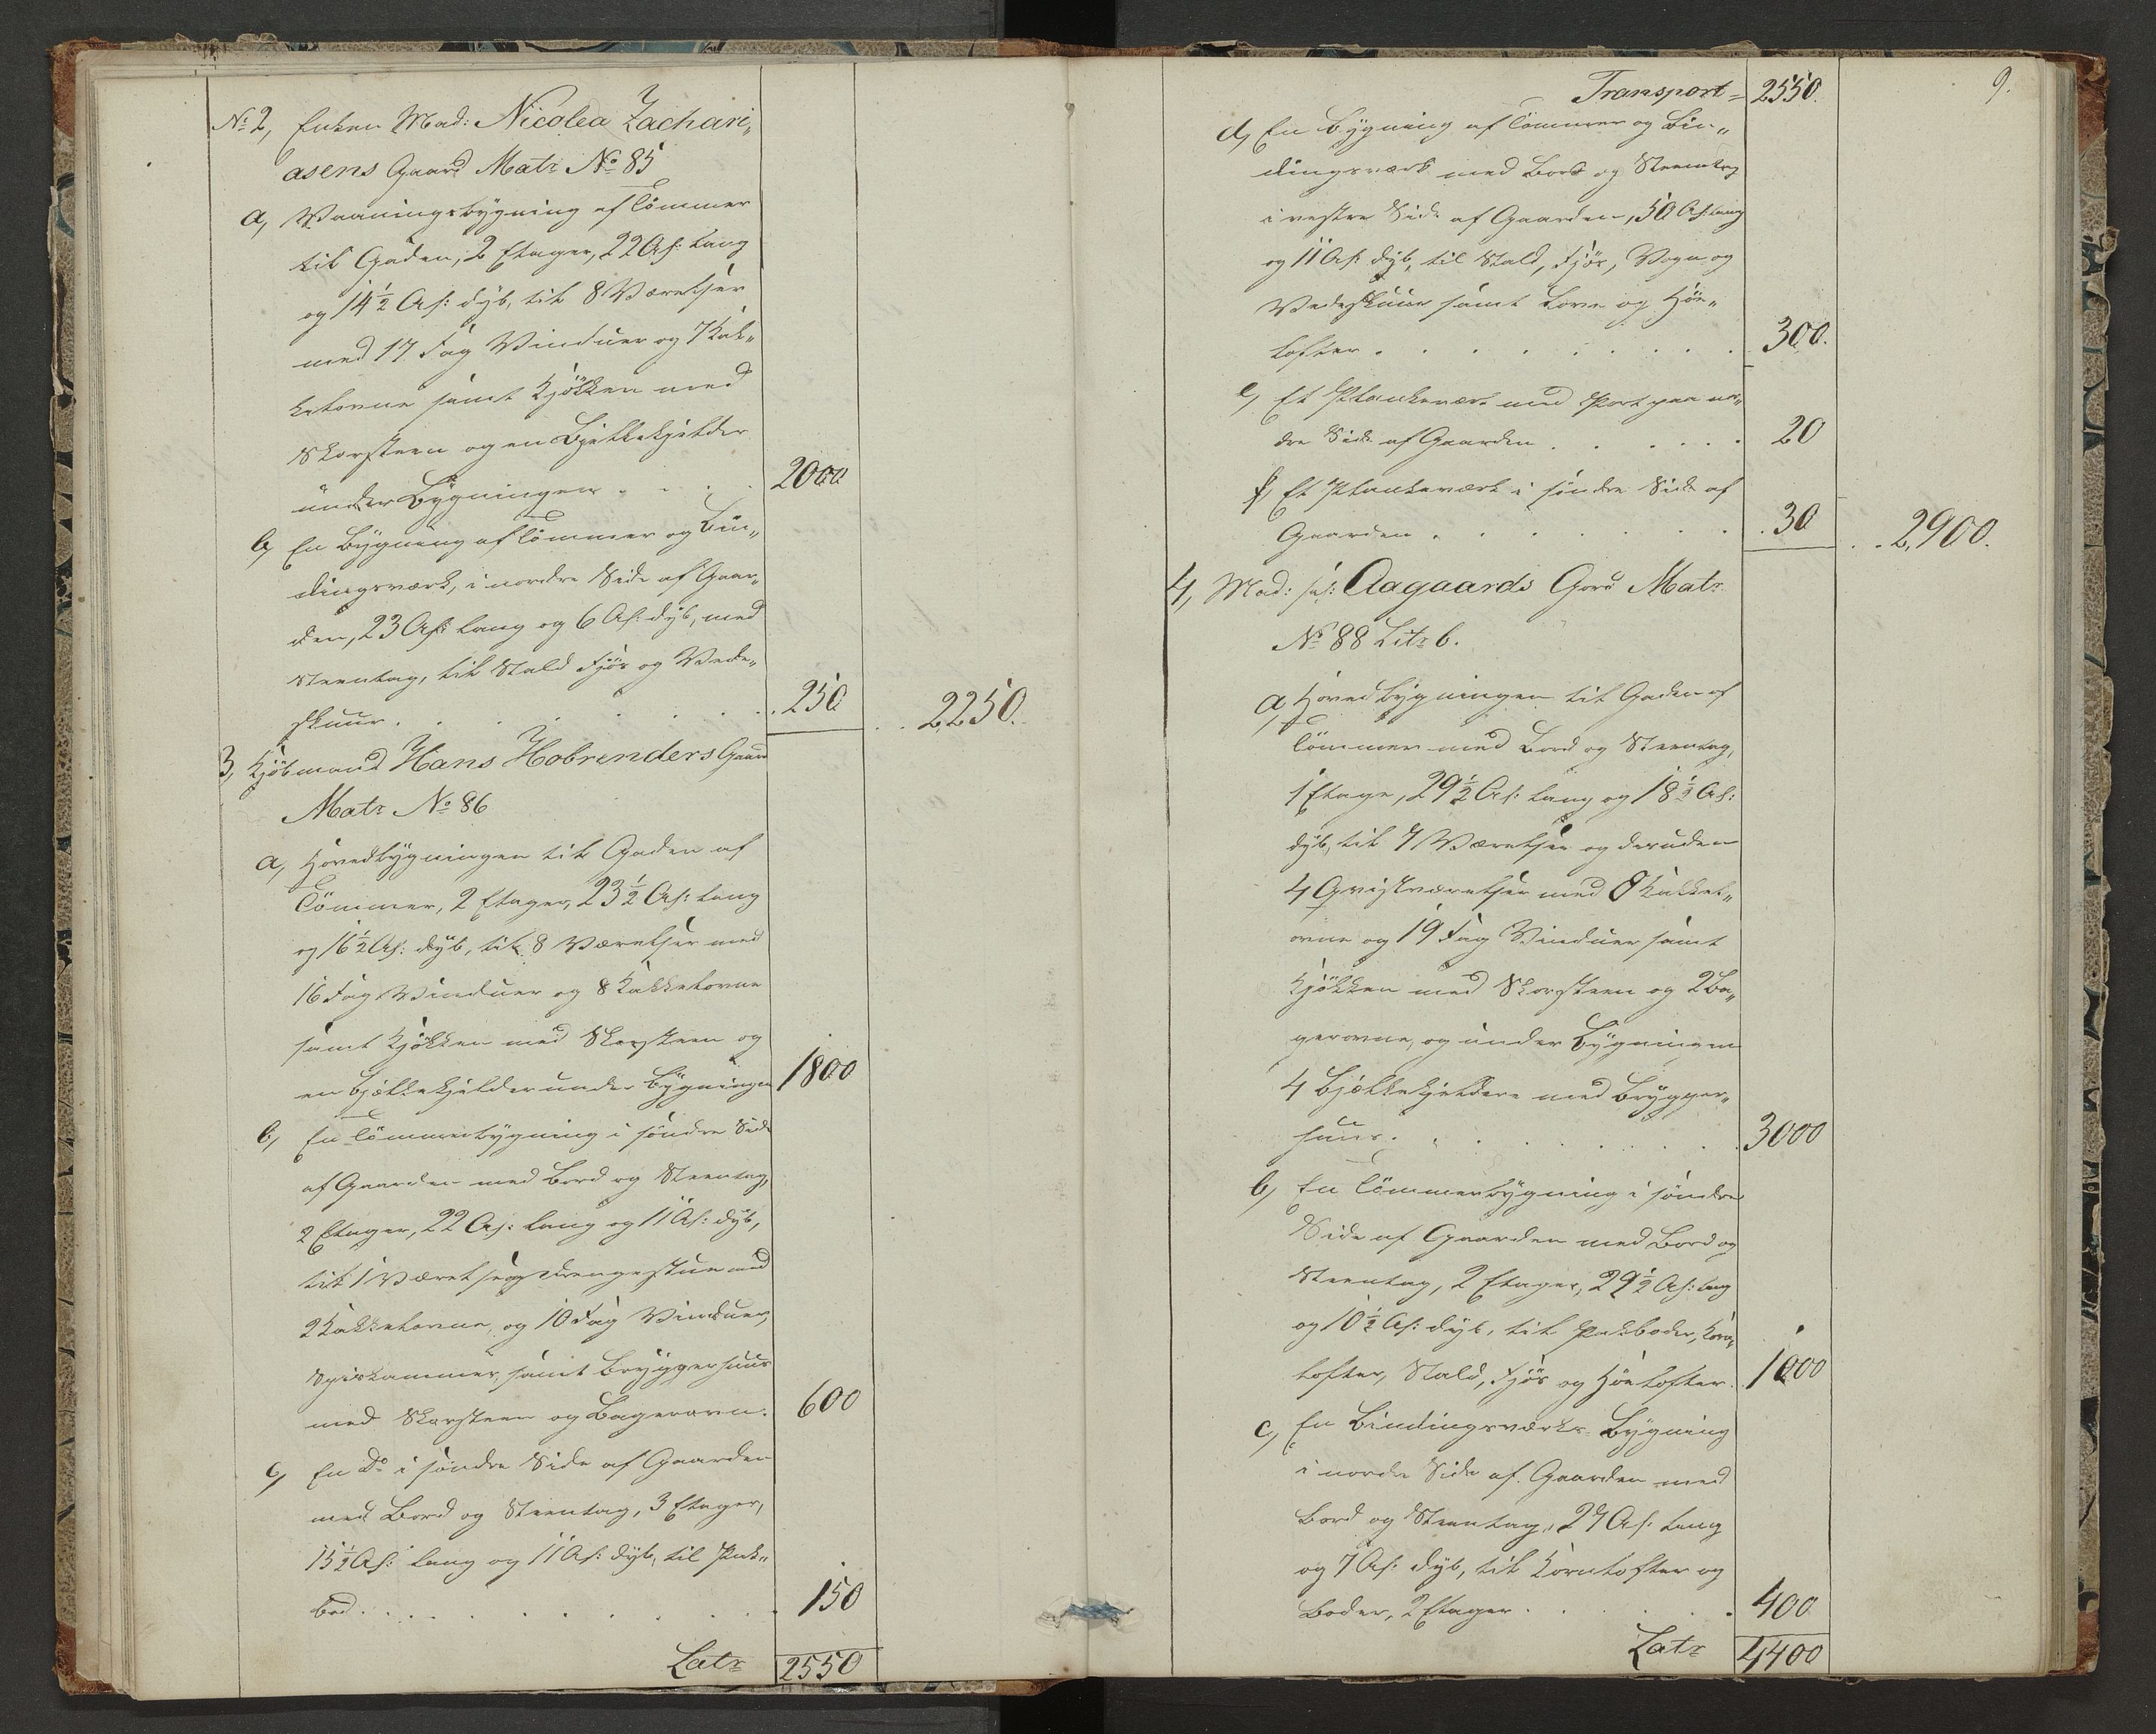 No 2, Enken Mad: Nicolea Zachari„
asens Gaard Matr No 85
a, Vaaningsbygning af Tömmer
til Gaden, 2 Etager, 22 Al: lang
og 14½ Al: dyb, til 8 Værelser
med 17 Fag Vinduer og 7 Kak„
kelovne samt Kjökken med
Skorsteen og en Bjelkekjelder
under Bygningen . . . . 2000
b, En Bygning af Tömmer og Bin„
dingsværk, i nordre Side af Gaar„
den, 23 Al: lang og 6 Al: dyb, med
Steentag, til Stald Fjös og Vede„
skuur . . . . . . . 250 . . 2250.
3, Kjöbmand Hans Hobrenders Gaard
Matr No 86
a, Hovedbygningen til Gaden af
Tömmer, 2 Etager, 23½ Al: lang
og 16½ Al: dyb, til 8 Værelser med
16 Fag Vinduer og 8 Kakkelovne
samt Kjökken med Skorsteen og
en Bjelkekjelder under Bygningen 1800
b, En Tömmerbygning i söndre Side
af Gaarden med Bord og Steentag,
2 Etager, 22 Al: lang og 11 Al: dyb,
til 1 Værelse og Drengestue med
2 Kakkelovne, og 10 Fag Vinduer,
Spiskammer, samt Bryggerhuus
med Skorsteen og Bagerovn. 600
c, En Do i söndre Side af Gaarden
med Bord og Steentag, 3 Etager,
15½ Al: lang og 11 Al: dyb, til Pak„
bod . . . . . . . . 150
Latr 2550
9.
Transport = 2550.
d, En Bygning af Tömmer og Bin„
dingsværk med Bord og Steentag
i vestre Side af Gaarden, 50 Al: lang
og 11 Al: dyb, til Stald, Fjös, Vogn og
Vedeskuur samt Love og Höe„
lofter . . . . . . . . 300.
e, Et Plankeværk med Port paa nor„
dre Side af Gaarden . . . . . 20
f, Et Plankeværk i söndre Side af
Gaarden . . . . . . . 30 . . 2,900.
4, Mad: sal: Aagaards Gard Matr
No 88 Litr b.
a, Hovedbygningen til Gaden af
Tömmer med Bord og Steentag,
1 Etage, 29½ Al: lang og 18½ Al:
dyb, til 7 Værelser og desuden
4 Qvistværelser med 8 Kakkel„
ovne og 19 Fag Vinduer samt
Kjökken med Skorsteen og 2 Ba„
gerovne, og under Bygningen
4 Bjelkekjeldere med Brygger„
huus . . . . . . . . 3000
b, En Tömmerbygning i söndre
Side af Gaarden med Bord og
Steentag, 2 Etager, 29½ Al: lang
og 10½ Al: dyb, til Pakboder, Korn„
lofter, Stald, Fjös og Höelofter. 1000
c, En Bindingsværks Bygning
i nordre Side af Gaarden med
Bord og Steentag, 27 Al: lang
og 7 Al: dyb, til Kornlofter og
Boder, 2 Etager . . . . . 400
Latr 4400